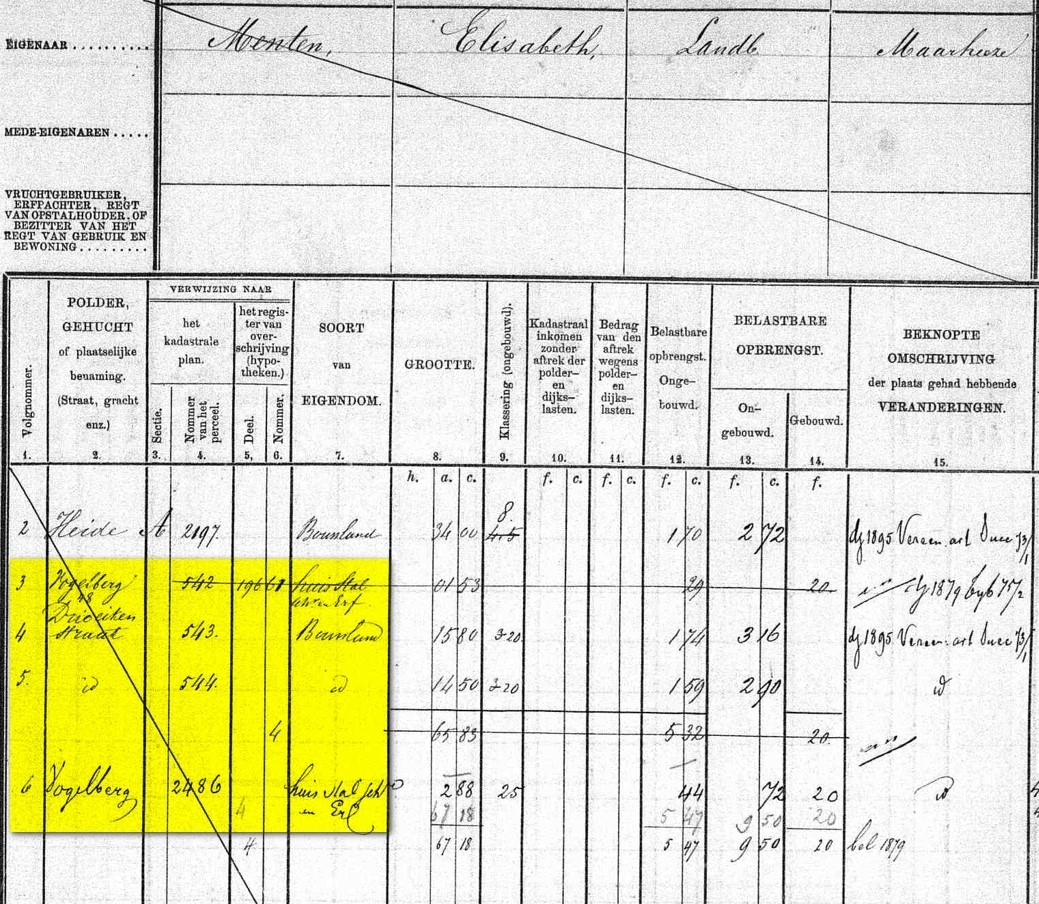 EIGENAAR .......... Menten, Elisabeth, Landb. Maarheeze
MEDE-EIGENAREN .....
VRUCHTGEBRUIKER,
ERFPACHTER, REGT
VAN OPSTALHOUDER, OF
BEZITTER VAN HET
REGT VAN GEBRUIK EN
BEWONING.........
Volgnommer.
1.
POLDER,
GEHUCHT
of plaatselijke
benaming.
(Straat, gracht
enz.)
2.
VERWIJZING NAAR
het
kadastrale
plan.
Sectie.
3.
Nommer
van het
perceel.
4.
het regis-
ter van
over-
schrijving
(hypo-
theken.)
Deel.
5.
Nommer.
6.
SOORT
van
EIGENDOM.
7.
GROOTTE.
8.
Klassering (ongebouwd).
9.
Kadastraal
inkomen
zonder
aftrek der
polder-
en
dijks-
lasten.
10.
Bedrag
van den
aftrek
wegens
polder-
en
dijks-
lasten.
11.
Belastbare
opbrengst.
Onge-
bouwd.
12.
BELASTBARE
OPBRENGST.
On-
gebouwd.
13.
Gebouwd.
14.
BEKNOPTE
OMSCHRIJVING
der plaats gehad hebbende
VERANDERINGEN.
15.
h. a. c. f. c. f. c. f. c. f. c. f.
8.
2 Heide A 2197. Bouwland 34 00 4.5 1 70 2 72 dj 1895 Vereen. art
3 Vogelberg 542 196 61 huis stal 01 53 29 20 dj 1879
48 en Erf
Drieeiken
4 straat 543. Bouwland 15 80 3-20 1 74 3 16 dj 1895 Vereen. art
5. id 544. id 14 50 3-20 1 59 2 90 id
4 65 83 5 32 20
6 Vogelberg 2486 huis stal sch 2 88 25 44 72 20 id
4 en Erf 67 18 5 47 9 50 20
4 67 18 5 47 9 50 20 bel 1879